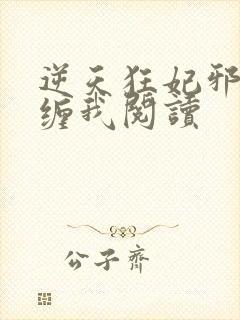 逆天狂妃邪
缠我閱讀
公子齊